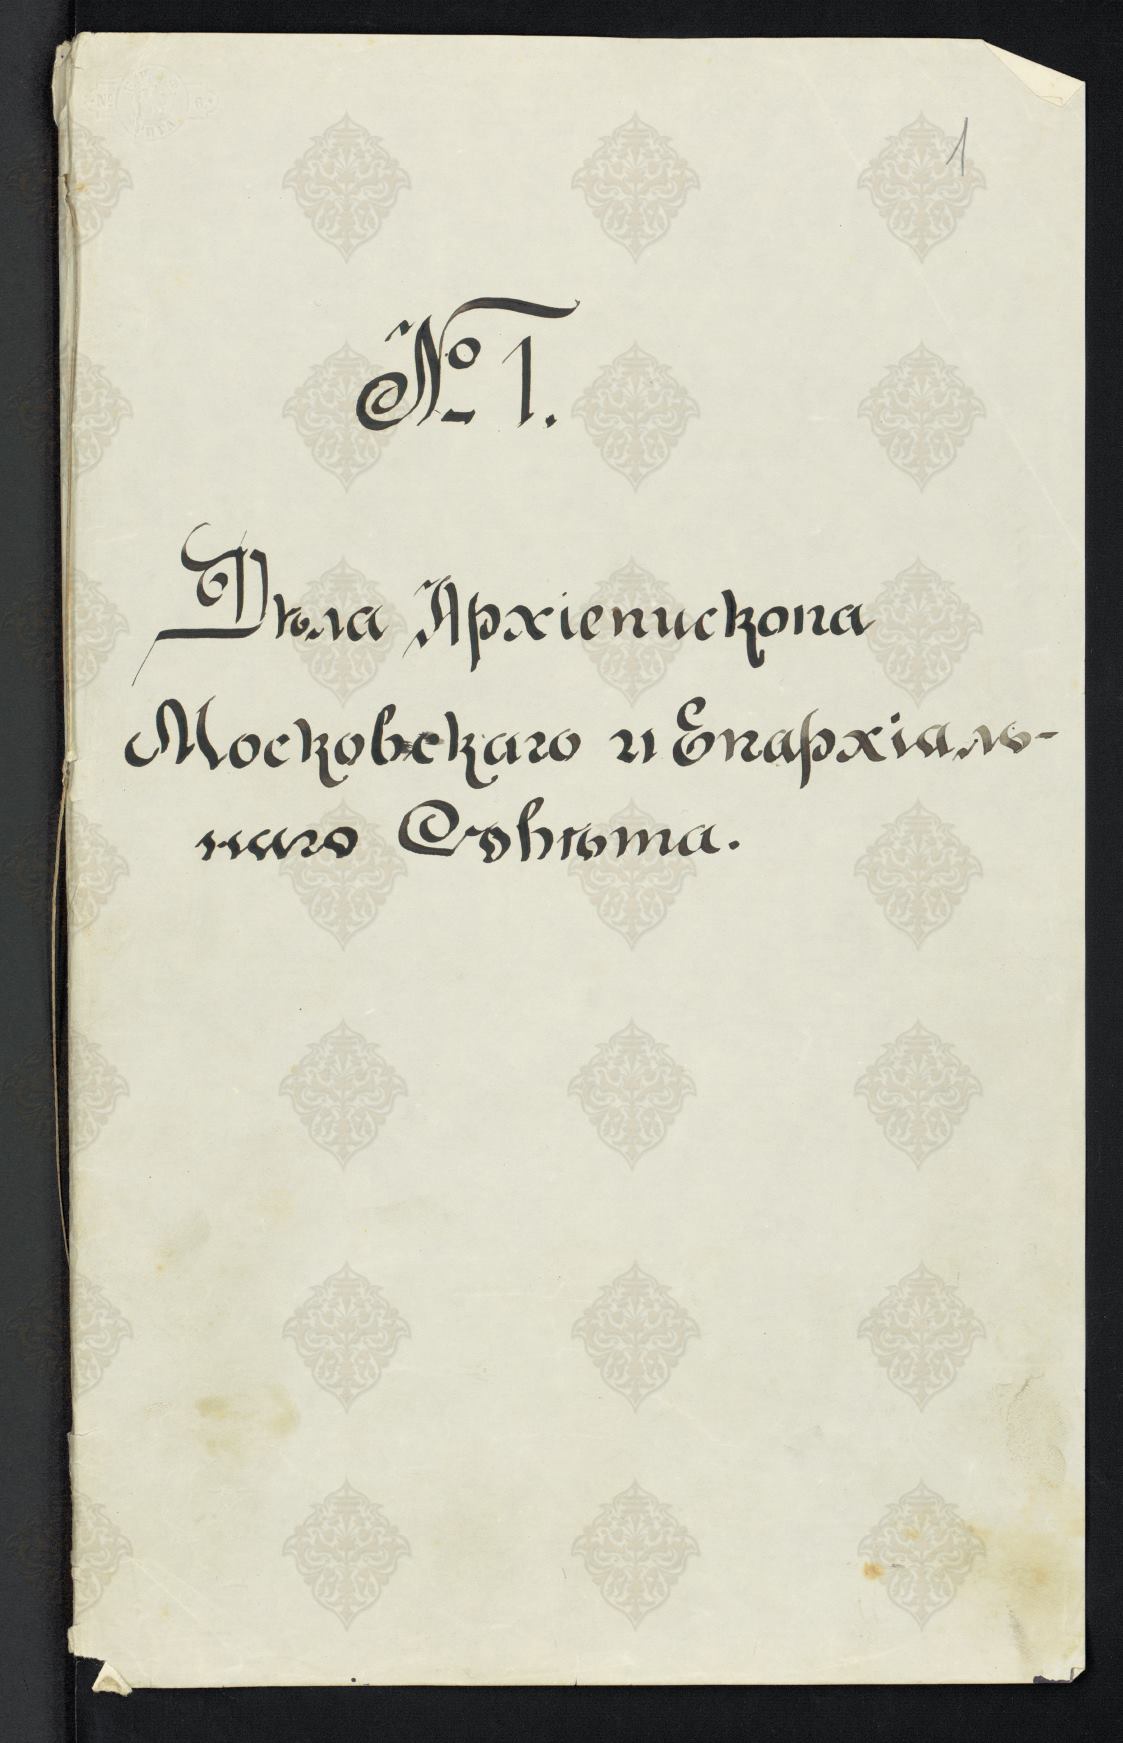 1
№ 1.
Дѣла Архіепископа
Московскаго и Епархіаль-
наго Совѣта.